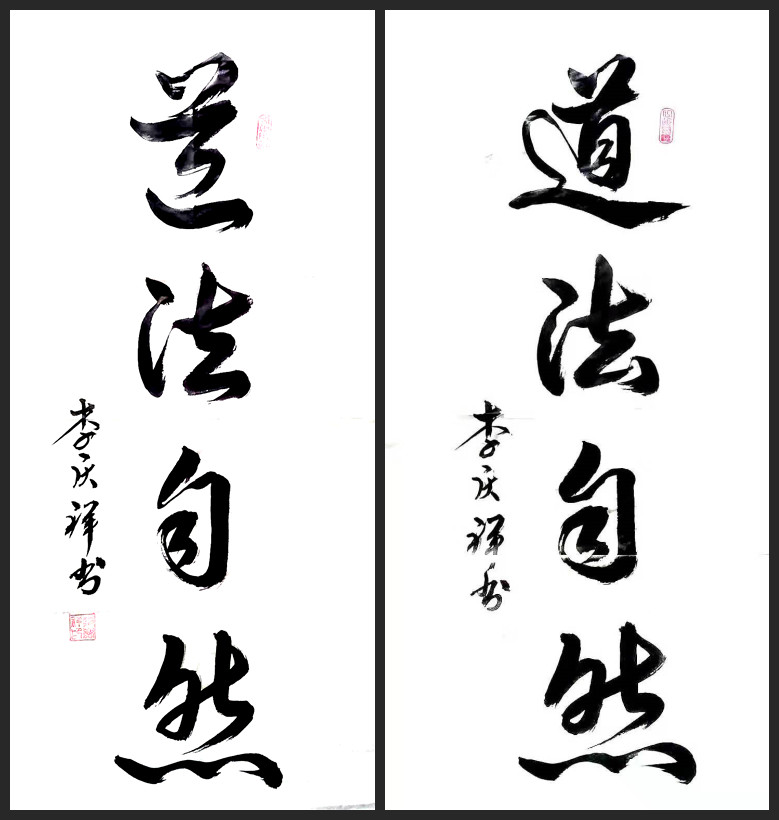 道法自然
李庆祥书
道法自然
李庆祥书